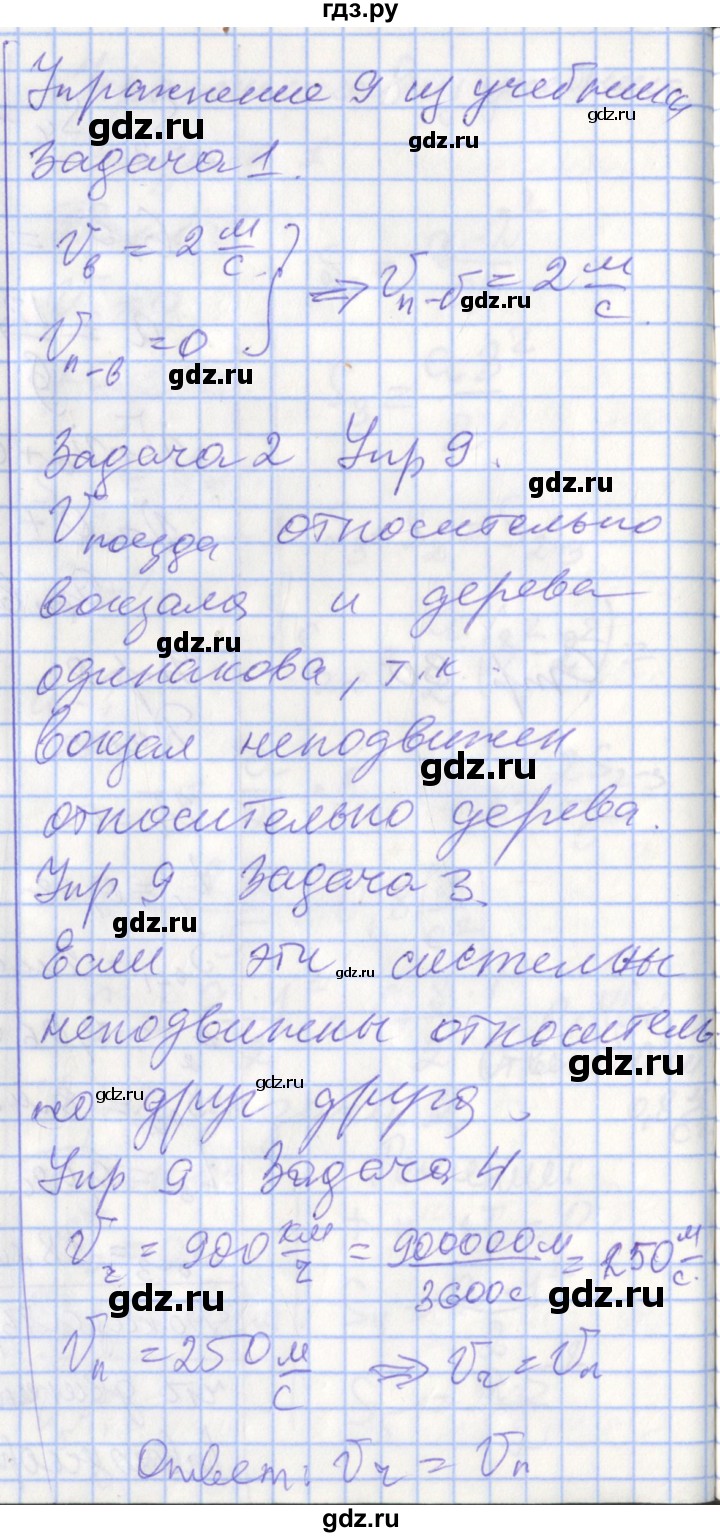 гдз.ру
Упражнение 9 из учебника
gdz.ru
gdz.ru
gdz.ru
Задача 1.
Vв = 2 м/с
Vп-в = 0 } ⇒ Vп-б = 2 м/с.
gdz.ru
gdz.ru
Задача 2 Упр 9.
gdz.ru
Vпоезда относительно
вокзала и дерева
gdz.ru
одинакова, т.к.
вокзал неподвижен
gdz.ru
относительно дерева.
Упр 9 Задача 3.
gdz.ru
Если эти системы
gdz.ru
неподвижны относитель
gdz.ru
gdz.ru
gdz.ru
но друг друга.
Упр 9 Задача 4
Vч = 900 км/ч = 900000м/3600с = 250 м/с.
gdz.ru
gdz.ru
Vп = 250 м/с ⇒ Vч = Vп
Ответ: Vч = Vп
gdz.ru